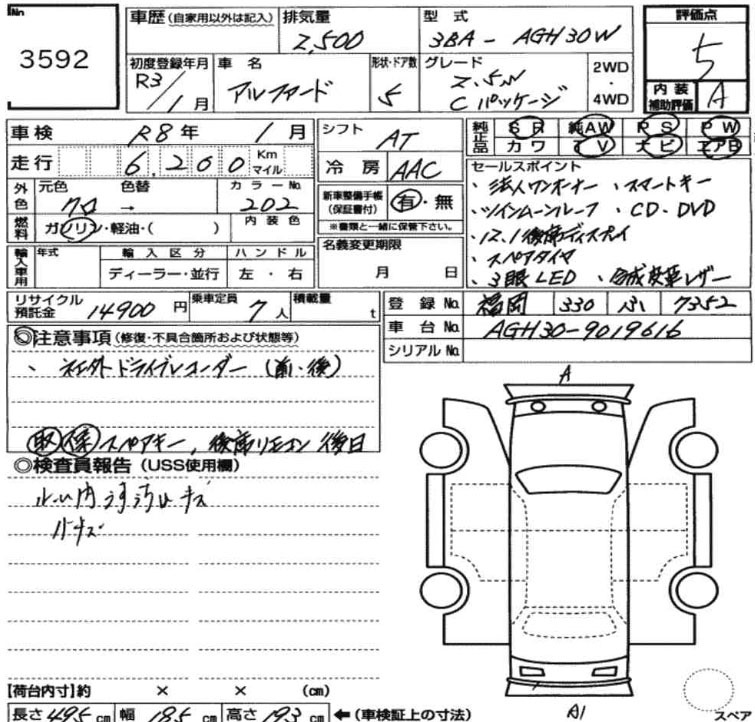 No.
3592
車歴(自家用以外は記入) 排気量 2,500 型式 3BA-AGH30W 評価点 5
初度登録年月 R3/1月 車名 アルファード 形状・ドア数 5 グレード 2.5 Cパッケージ 2WD・4WD 内装補助評価 A
車検 R8年 1月 シフト AT 純正品 SR 純AW PS PW
カワ TV ナビ エアB
走行 6,200 Km マイル 冷房 AAC セールスポイント
外色 元色 クロ 色替 → カラーNo. 202 新車整備手帳(保証書付) 有・無 ※書類と一緒に保管下さい。
・法人ワンオーナー ・スマートキー
・ツインムーンルーフ ・CD・DVD
燃料 ガソリン・軽油・( ) 内装色 名義変更期限 月 日
・12.1後席ディスプレイ
・スペアタイヤ
・3眼LED ・合成皮革レザー
輸入車用 年式 輸入区分 ハンドル
ディーラー・並行 左・右
リサイクル預託金 14900円 乗車定員 7人 積載量 t 登録No. 福岡 330 ふ 7352
車台No. AGH30-9019616
シリアルNo.
◎注意事項(修復・不具合箇所および状態等)
、社外ドライブレコーダー(前・後)
取 保 スペアキー、後席リモコン後日
◎検査員報告(USS使用欄)
ルーム内うすうすキズ
ハキズ
A
A1
スペア
【荷台内寸】約 × × (cm)
長さ 495cm 幅 185cm 高さ 193cm ←(車検証上の寸法)